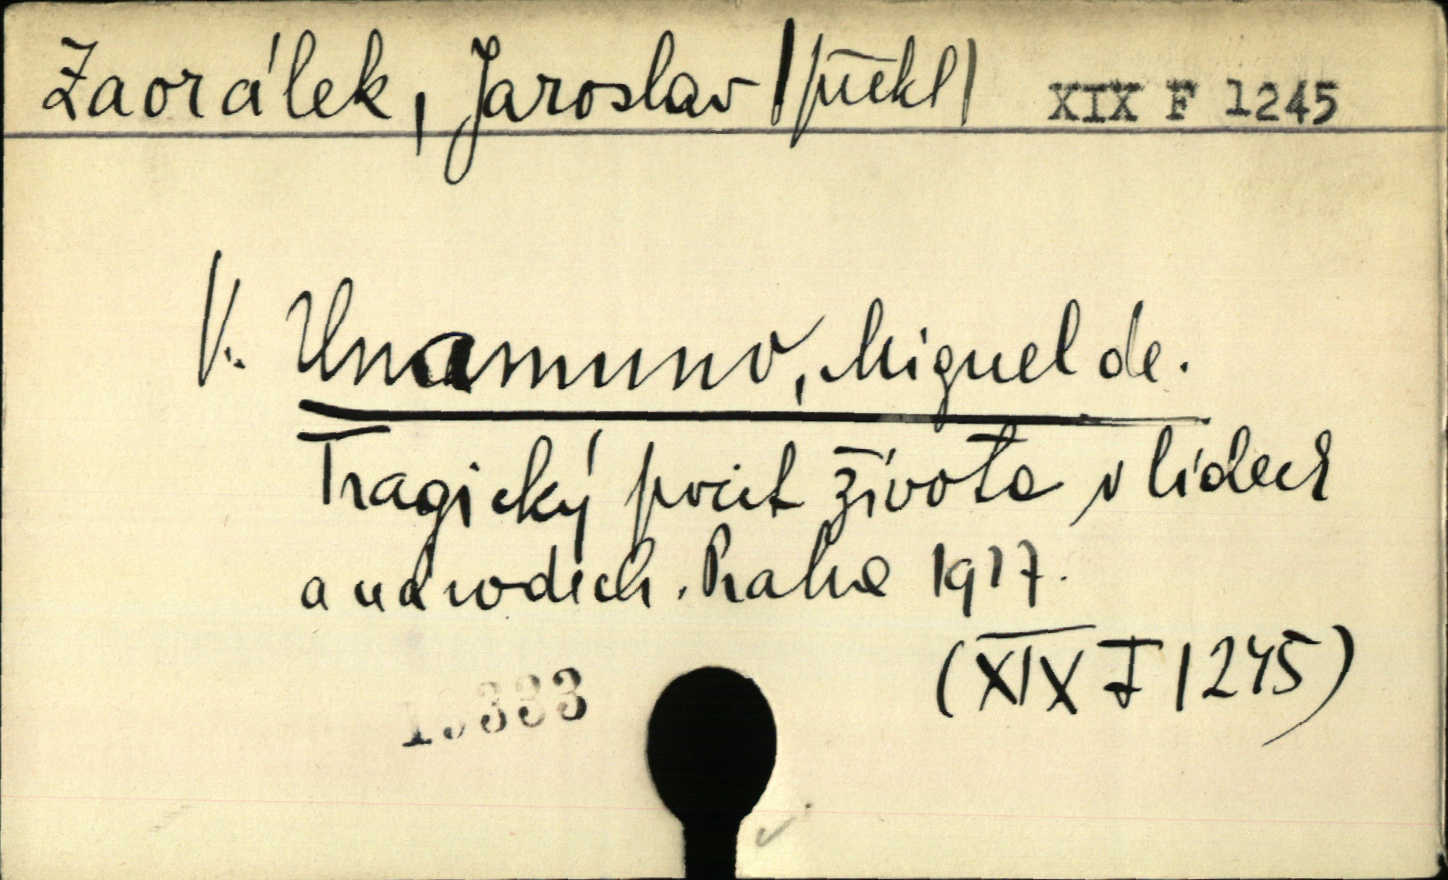 Zaorálek, Jaroslav /překl/ XIX F 1245
V. Unamuno, Miguel de.
Tragický pocit života v lidech
a národech. Praha 1917.
(XIX F 1245)
333